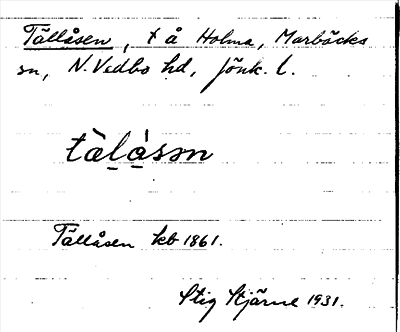 Tällåsen, t å Holma, Marbäcks
sn, N. Vedbo hd, Jönk. l.
tàlåsən
Tällåsen kb 1861.
Stig Stjärne 1931.